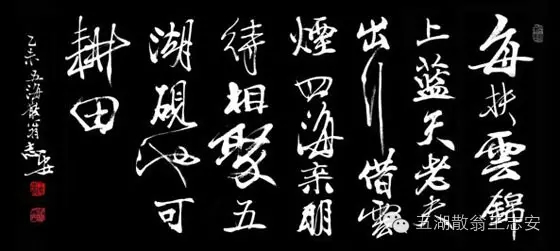 每扶雲錦
上藍天老夫
出行借雲
煙四海亲朋
待相聚五
湖硯池可
耕田
乙未五湖散翁志安
五湖散翁王志安